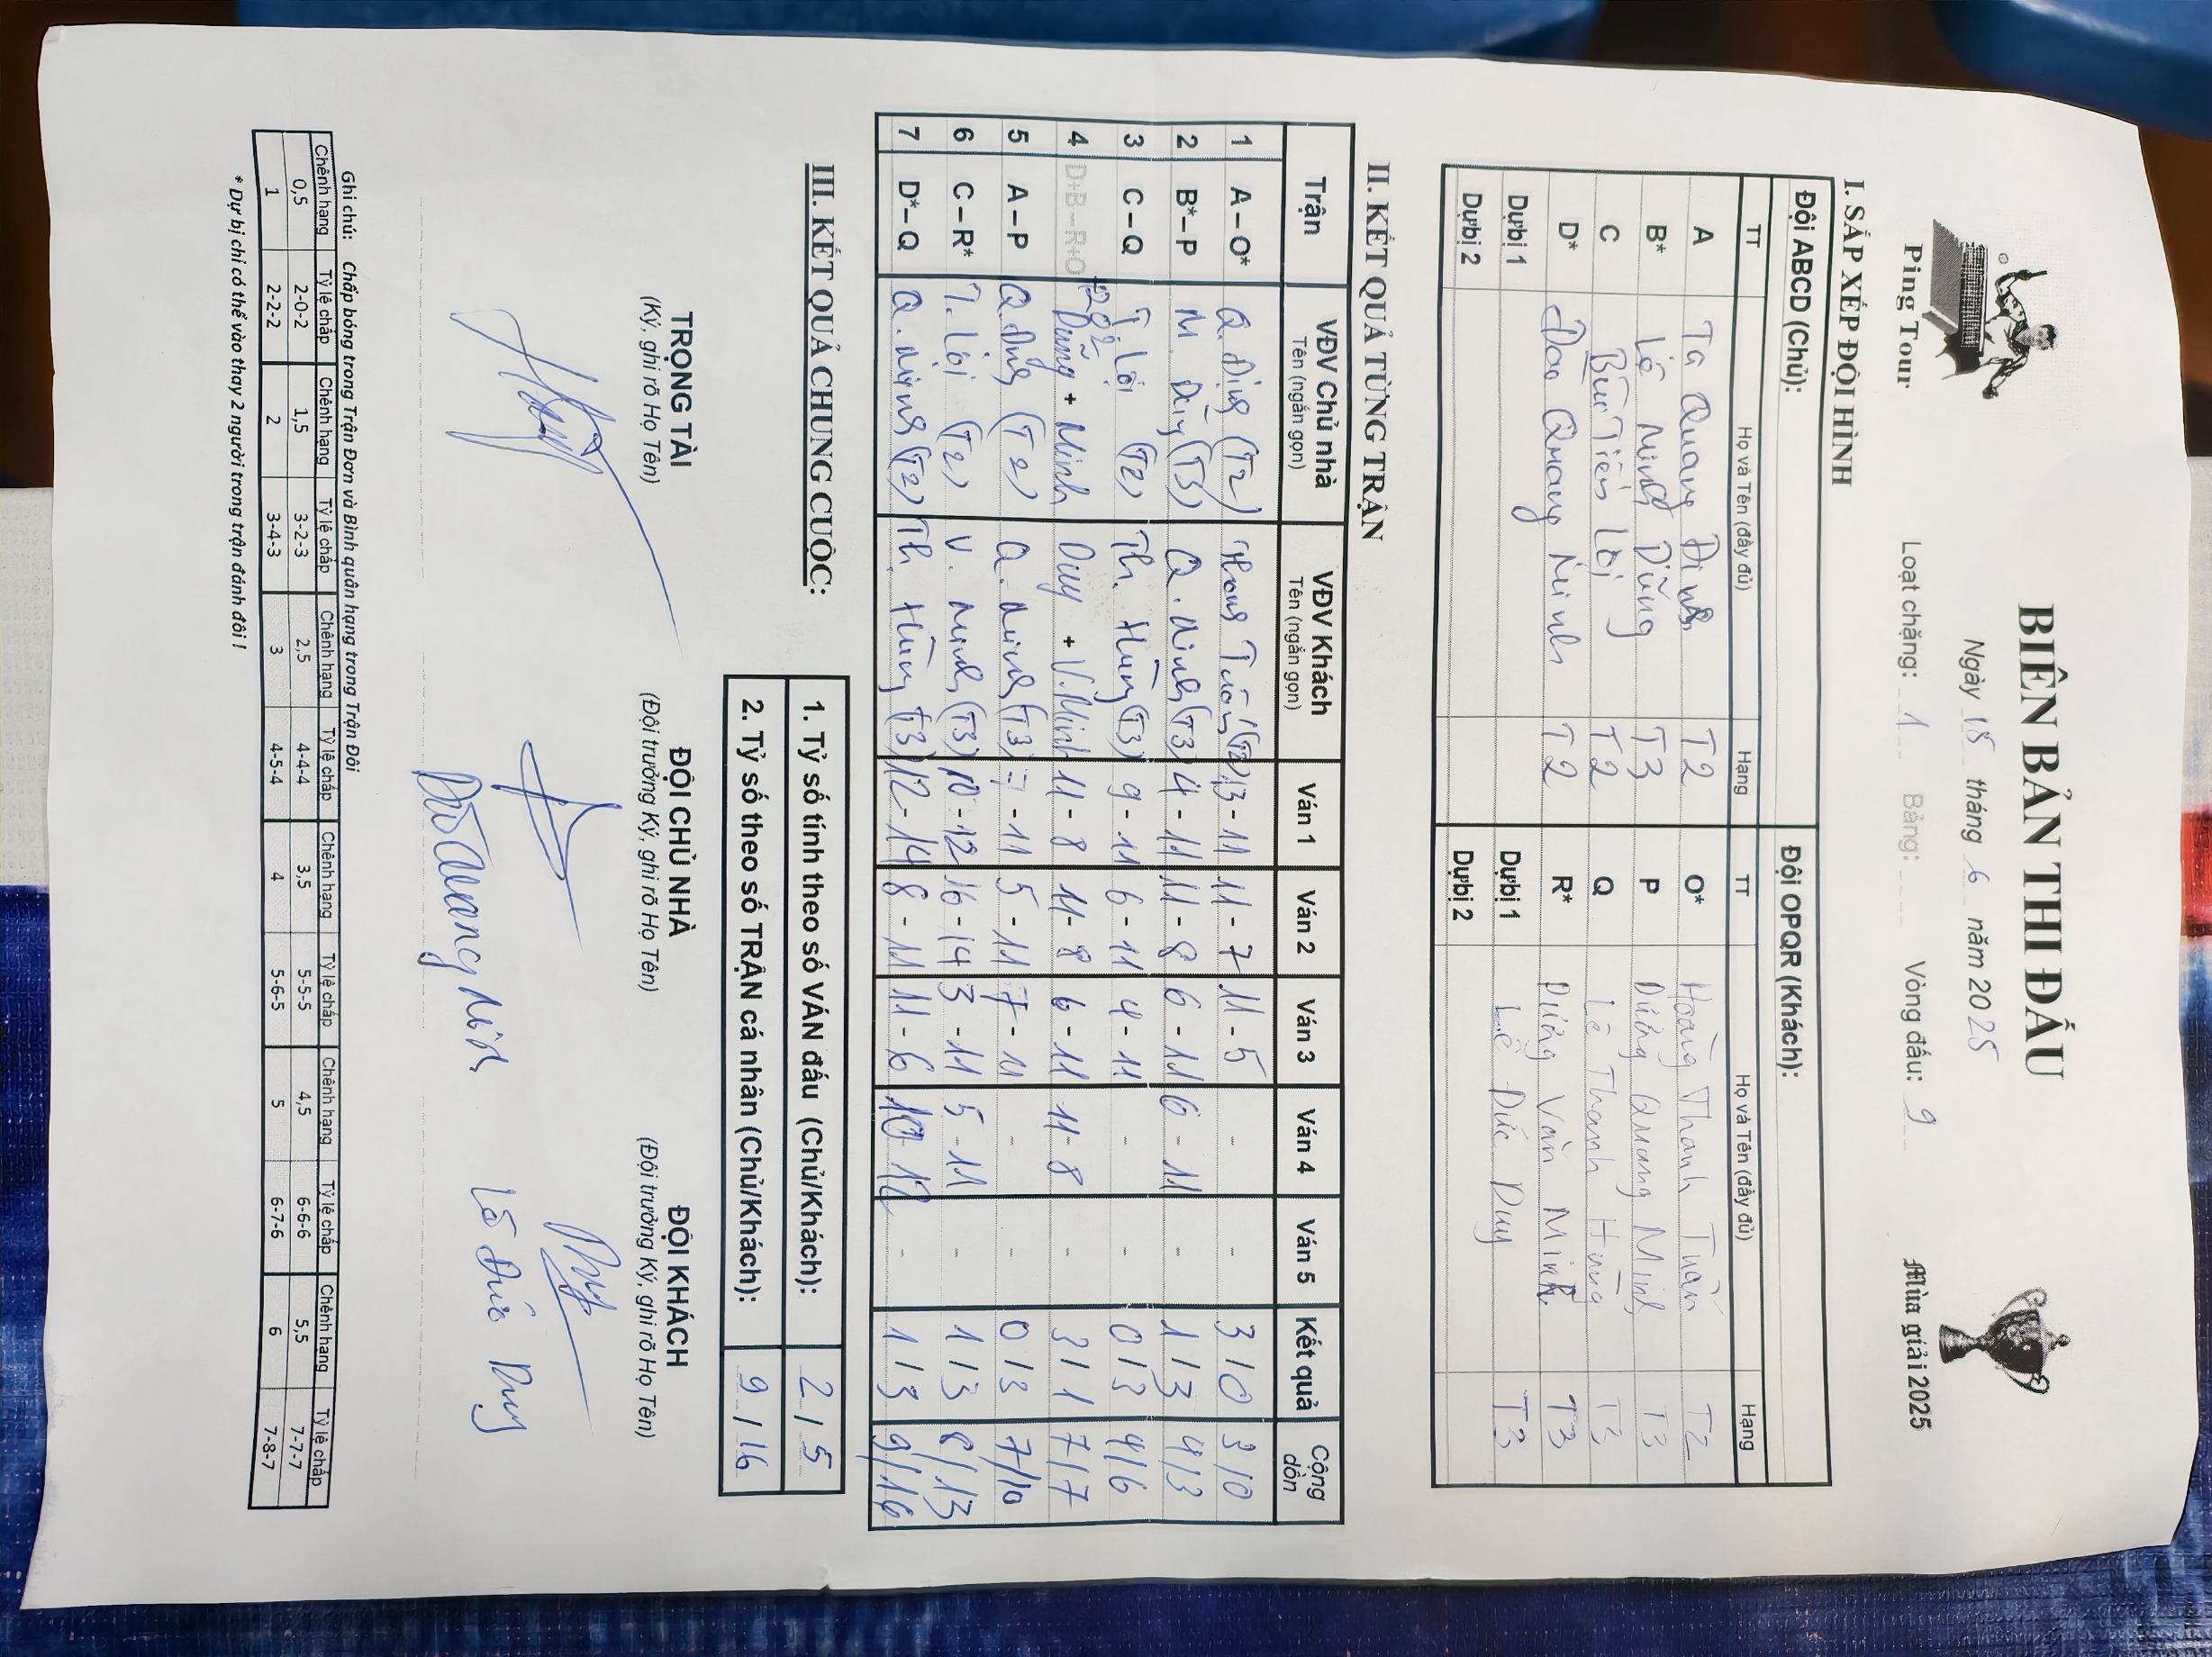 BIÊN BẢN THI ĐẤU
Ngày 15 tháng 6 năm 2025
Ping Tour Loạt chặng: 1 Bảng: Vòng đấu: 9 Mùa giải 2025
I. SẮP XẾP ĐỘI HÌNH
Đội ABCD (Chủ): Đội OPQR (Khách):
TT Họ và Tên (đầy đủ) Hạng TT Họ và Tên (đầy đủ) Hạng
A Tạ Quang Định T2 O* Hoàng Thanh Tuấn T2
B* Lê Minh Dũng T3 P Dương Quang Minh T3
C Bùi Tiến Lợi T2 Q Lê Thanh Hùng T3
D* Đào Quang Ninh T2 R* Dương Văn Minh T3
Dự bị 1 Dự bị 1 Lê Đức Duy T3
Dự bị 2 Dự bị 2
II. KẾT QUẢ TỪNG TRẬN
Trận VĐV Chủ nhà VĐV Khách Ván 1 Ván 2 Ván 3 Ván 4 Ván 5 Kết quả Cộng dồn
Tên (ngắn gọn) Tên (ngắn gọn)
1 A – O* Q. Định (T2) Thanh Tuấn (T2) 13 - 11 11 - 7 11 - 5 - - 3 / 0 3 / 0
2 B* – P M. Dũng (T3) Q. Minh (T3) 4 - 11 11 - 8 6 - 11 6 - 11 - 1 / 3 4 / 3
3 C – Q T. Lợi (T2) Th. Hùng (T3) 9 - 11 6 - 11 4 - 11 - - 0 / 3 4 / 6
4 D+B – R+O Dũng + Ninh Duy + V. Minh 11 - 8 11 - 8 6 - 11 11 - 8 - 3 / 1 7 / 7
5 A – P Q. Định (T2) Q. Minh (T3) 7 - 11 5 - 11 7 - 11 - - 0 / 3 7 / 10
6 C – R* T. Lợi (T2) V. Minh (T3) 10 - 12 16 - 14 3 - 11 5 - 11 - 1 / 3 8 / 13
7 D* – Q Q. Ninh (T2) Th. Hùng (T3) 12 - 14 8 - 11 11 - 6 10 - 12 - 1 / 3 9 / 16
III. KẾT QUẢ CHUNG CUỘC:
1. Tỷ số tính theo số VÁN đấu (Chủ/Khách): 2 / 5
2. Tỷ số theo số TRẬN cá nhân (Chủ/Khách): 9 / 16
TRỌNG TÀI ĐỘI CHỦ NHÀ ĐỘI KHÁCH
(Ký, ghi rõ Họ Tên) (Đội trưởng Ký, ghi rõ Họ Tên) (Đội trưởng Ký, ghi rõ Họ Tên)
Đào Quang Ninh Lê Đức Duy
Ghi chú: Chấp bóng trong Trận Đơn và Bình quân hạng trong Trận Đôi
Chênh hạng Tỷ lệ chấp Chênh hạng Tỷ lệ chấp Chênh hạng Tỷ lệ chấp Chênh hạng Tỷ lệ chấp Chênh hạng Tỷ lệ chấp Chênh hạng Tỷ lệ chấp
0,5 2-0-2 1,5 3-2-3 2,5 4-4-4 3,5 5-5-5 4,5 6-6-6 5,5 7-7-7
1 2-2-2 2 3-4-3 3 4-5-4 4 5-6-5 5 6-7-6 6 7-8-7
* Dự bị chỉ có thể vào thay 2 người trong trận đánh đôi !